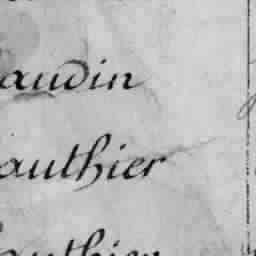 audin
authier
authier